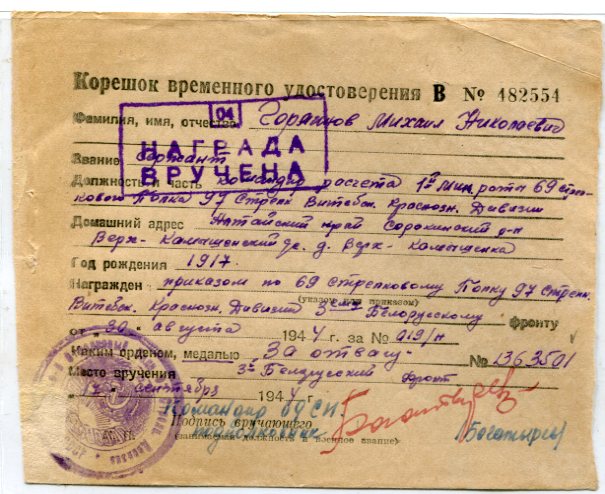 Корешок временного удостоверения В № 482554
Фамилия, имя, отчество Горяинов Михаил Николаевич
04
НАГРАДА
ВРУЧЕНА
Звание Сержант
Должность и часть Командир расчета 1й мин. роты 69 стрел-
кового Полка 97 Стрелк Витебск. Краснозн. Дивизии
Домашний адрес Алтайский край Сорокинский р-н
Верх-Камышенский д. Верх-Камышенка
Год рождения 1917.
Награжден приказом по 69 Стрелковому Полку 97 Стрелк.
(указать чьим приказом)
Витебск. Краснозн. Дивизии 3му Белорусскому фронту
от "20" августа 1944 г. за № 019/н
Каким орденом, медалью "За отвагу" № 1363501
Место вручения 3й Белорусский Фронт
"17" сентября 1944 г.
Командир 69 СП
Подпись вручающего
подполковник Богатырев
(занимаемая должность и военное звание)